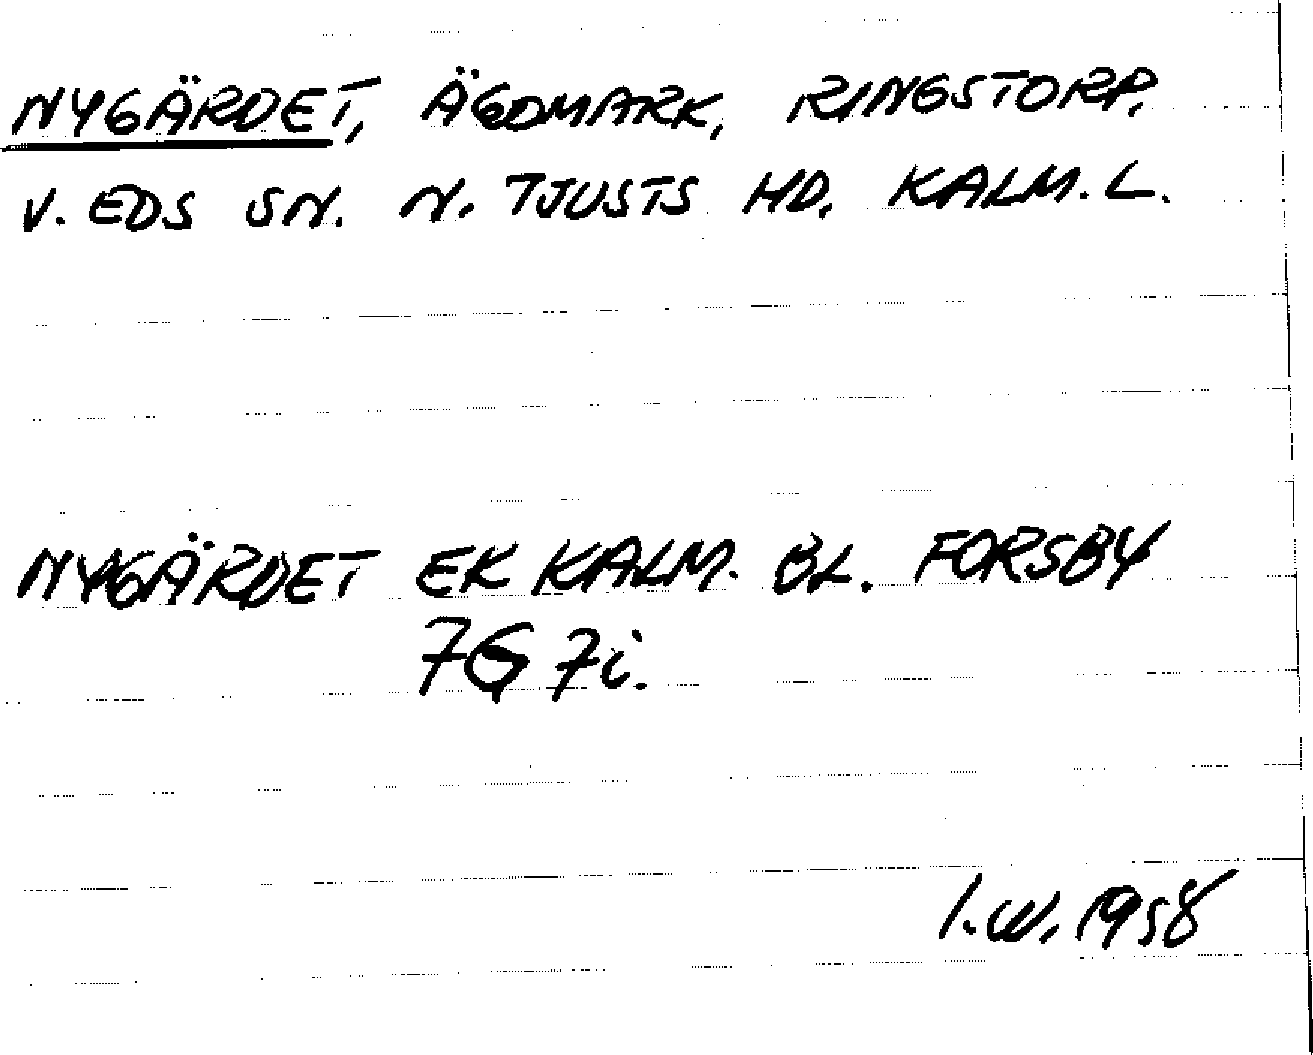 NYGÄRDET, ÄGOMARK, RINGSTORP,
V. EDS SN. N. TJUSTS HD, KALM. L.
NYGÄRDET EK KALM. BL. FORSBY
7G 7i.
I.W. 1958